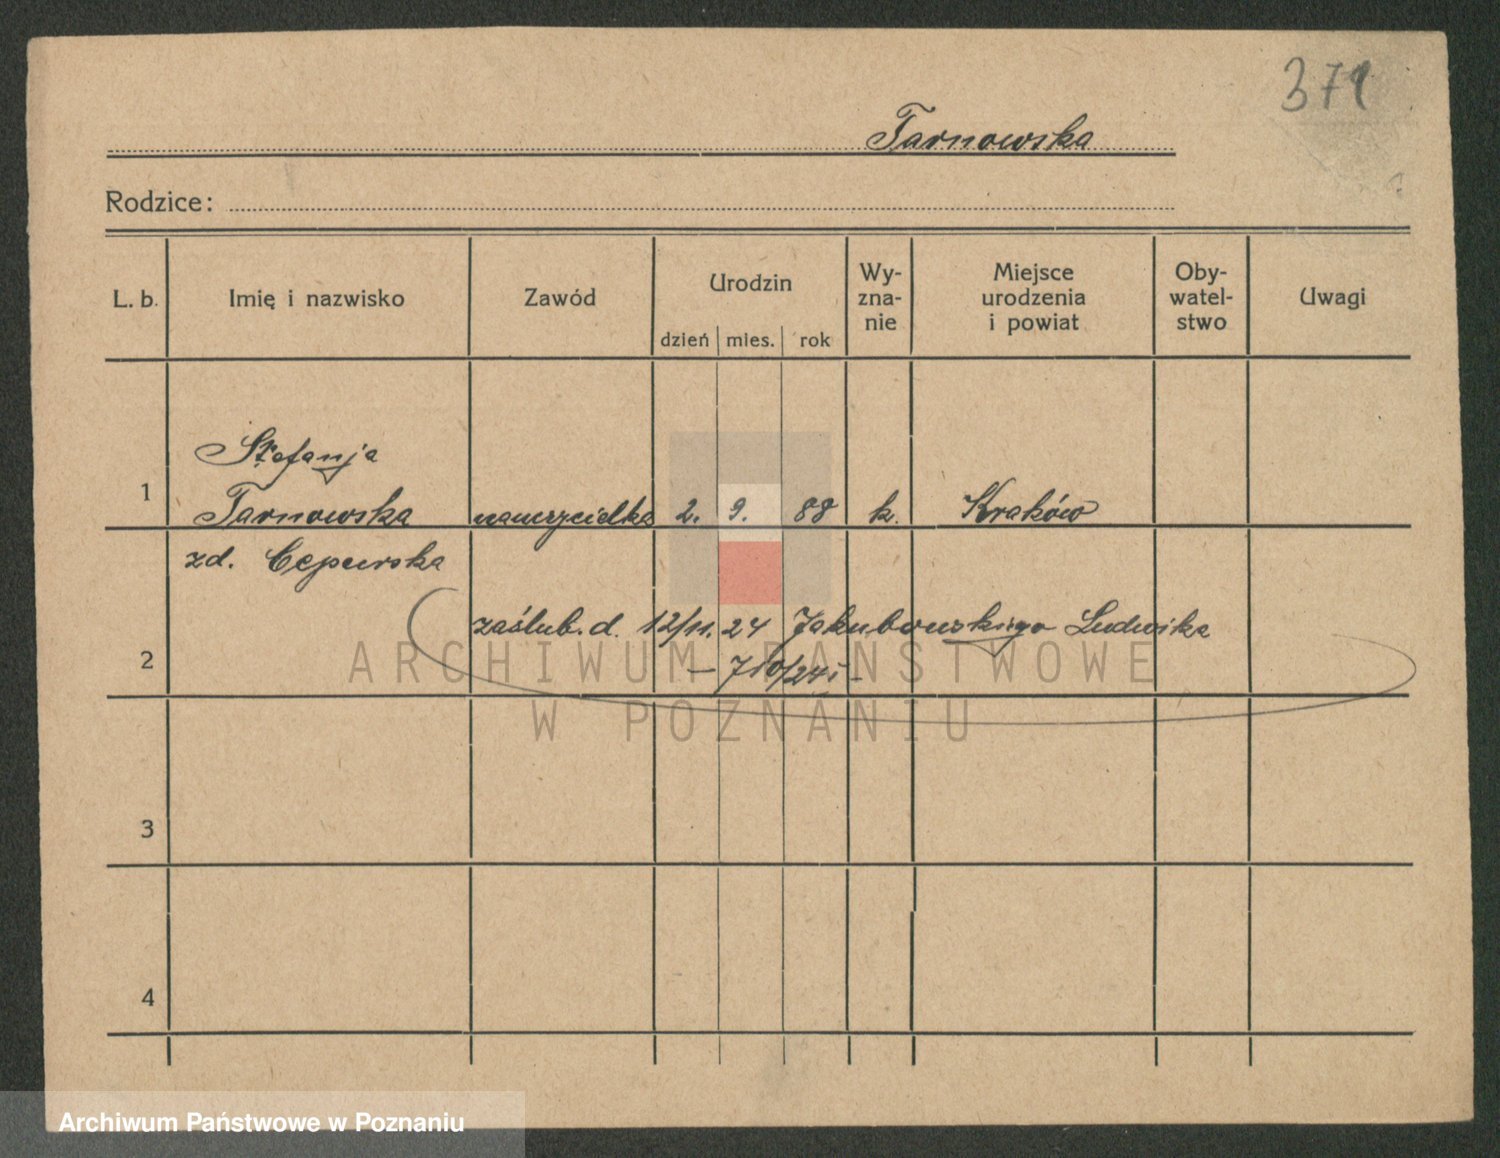 371
Tarnowska
Rodzice:
L. b.
Imię i nazwisko
Zawód
Urodzin
dzień
mies.
rok
Wy-
zna-
nie
Miejsce
urodzenia
i powiat
Oby-
watel-
stwo
Uwagi
Stefanja
1 Tarnowska nauczycielka 2. 9. 88 k. Kraków
zd.
zaślub. d. 12/11. 24 Jakubowskiego Ludwika
2 — 710/24
ARCHIWUM PAŃSTWOWE
W POZNANIU
3
4
Archiwum Państwowe w Poznaniu